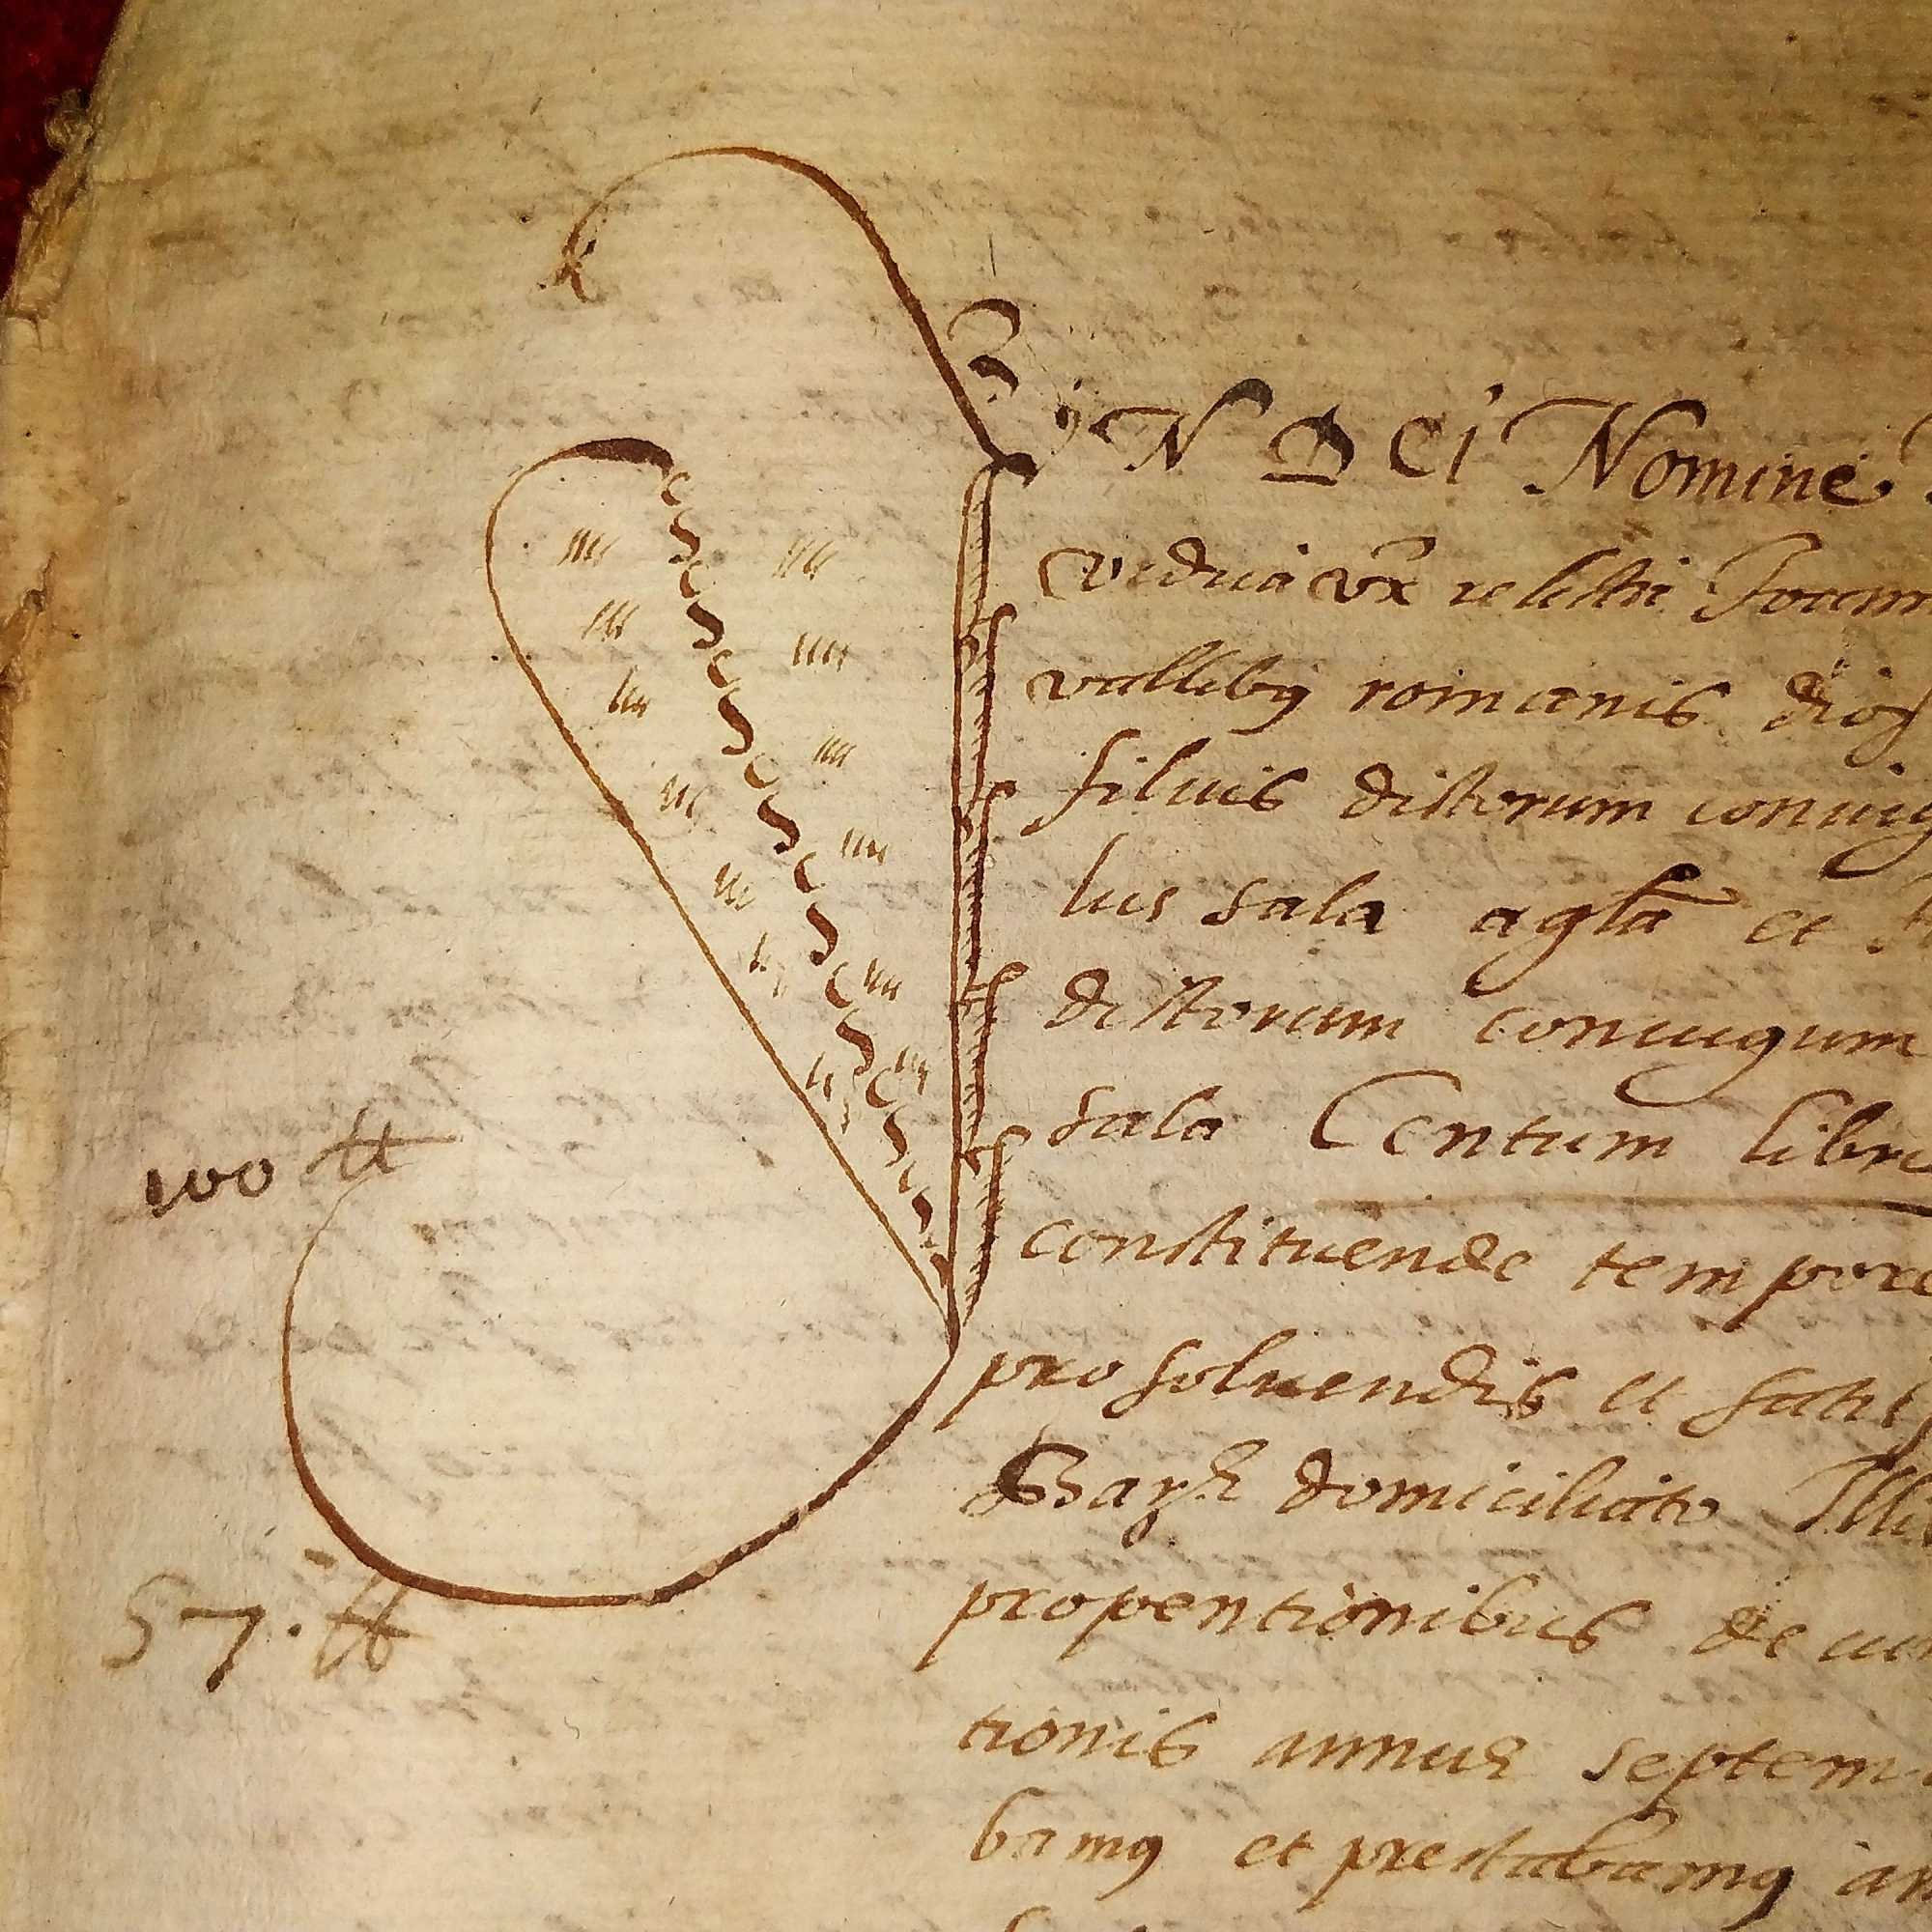 IN DEI Nomine
vidua vx relicta Joann
vallibq romanis dioc
filius dictorum coniug
lus sala agla et
dictorum coniugum
100 ℔ sala Centum libr
constituende tempore
pro solvendis et satis
domiciliato Ill
57. ℔ propentionibus de
tionis annue septem
bamq et prestabamq an